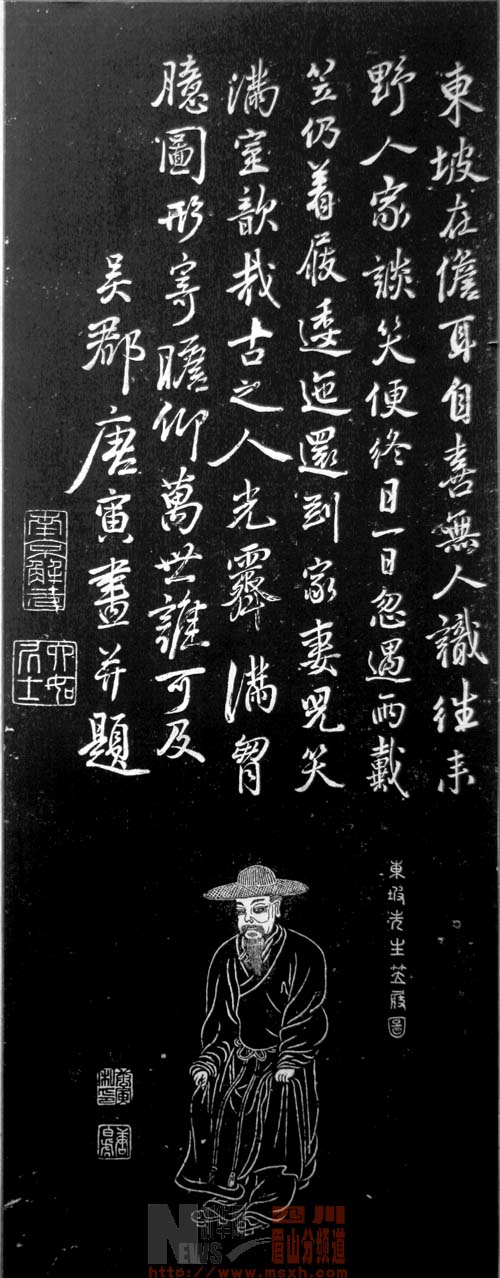 東坡在儋耳自喜無人識往来
野人家談笑便終日一日忽遇雨戴
笠仍着屐逶迤還到家妻児笑
滿室歆哉古之人光霽滿胷
臆圖形寄瞻仰萬世誰可及
吴郡唐寅畫并題
南京解元
六如居士
東坡先生笠屐圖
唐寅私印
唐白虎
NEWS
四川
眉山分频道
http://www.msxh.com